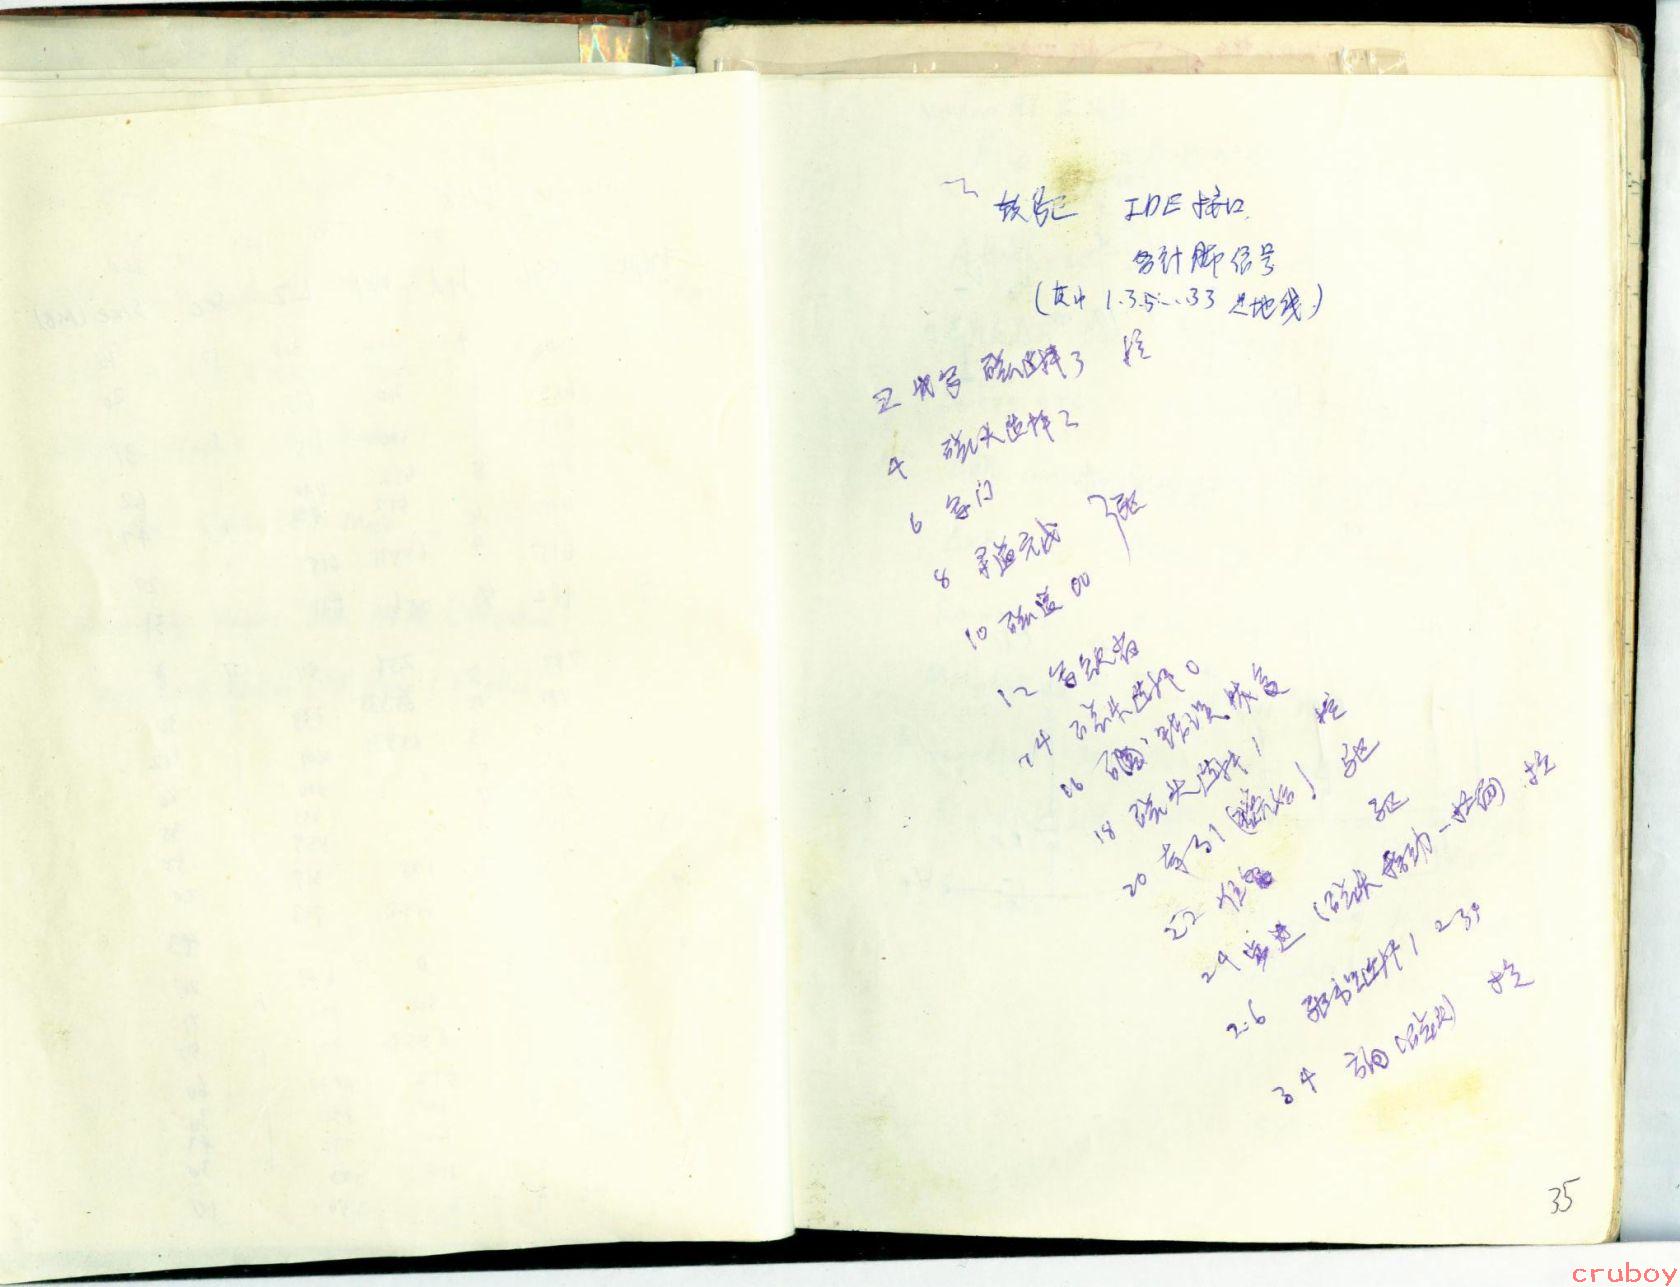 软驱 IDE接口
各针脚信号
(其中 1.3.5...33 是地线)
2 磁头选择3 控
4 磁头选择2
6 写门
8 寻道完成 驱
10 磁道00
12 写故障
14 磁头选择0
16
18 磁头选择1 控
20 索引 驱
22 驱
24 步进 (磁头移动一柱面) 控
26 驱动器选择1
34 方向(磁头) 控
35
cruboy